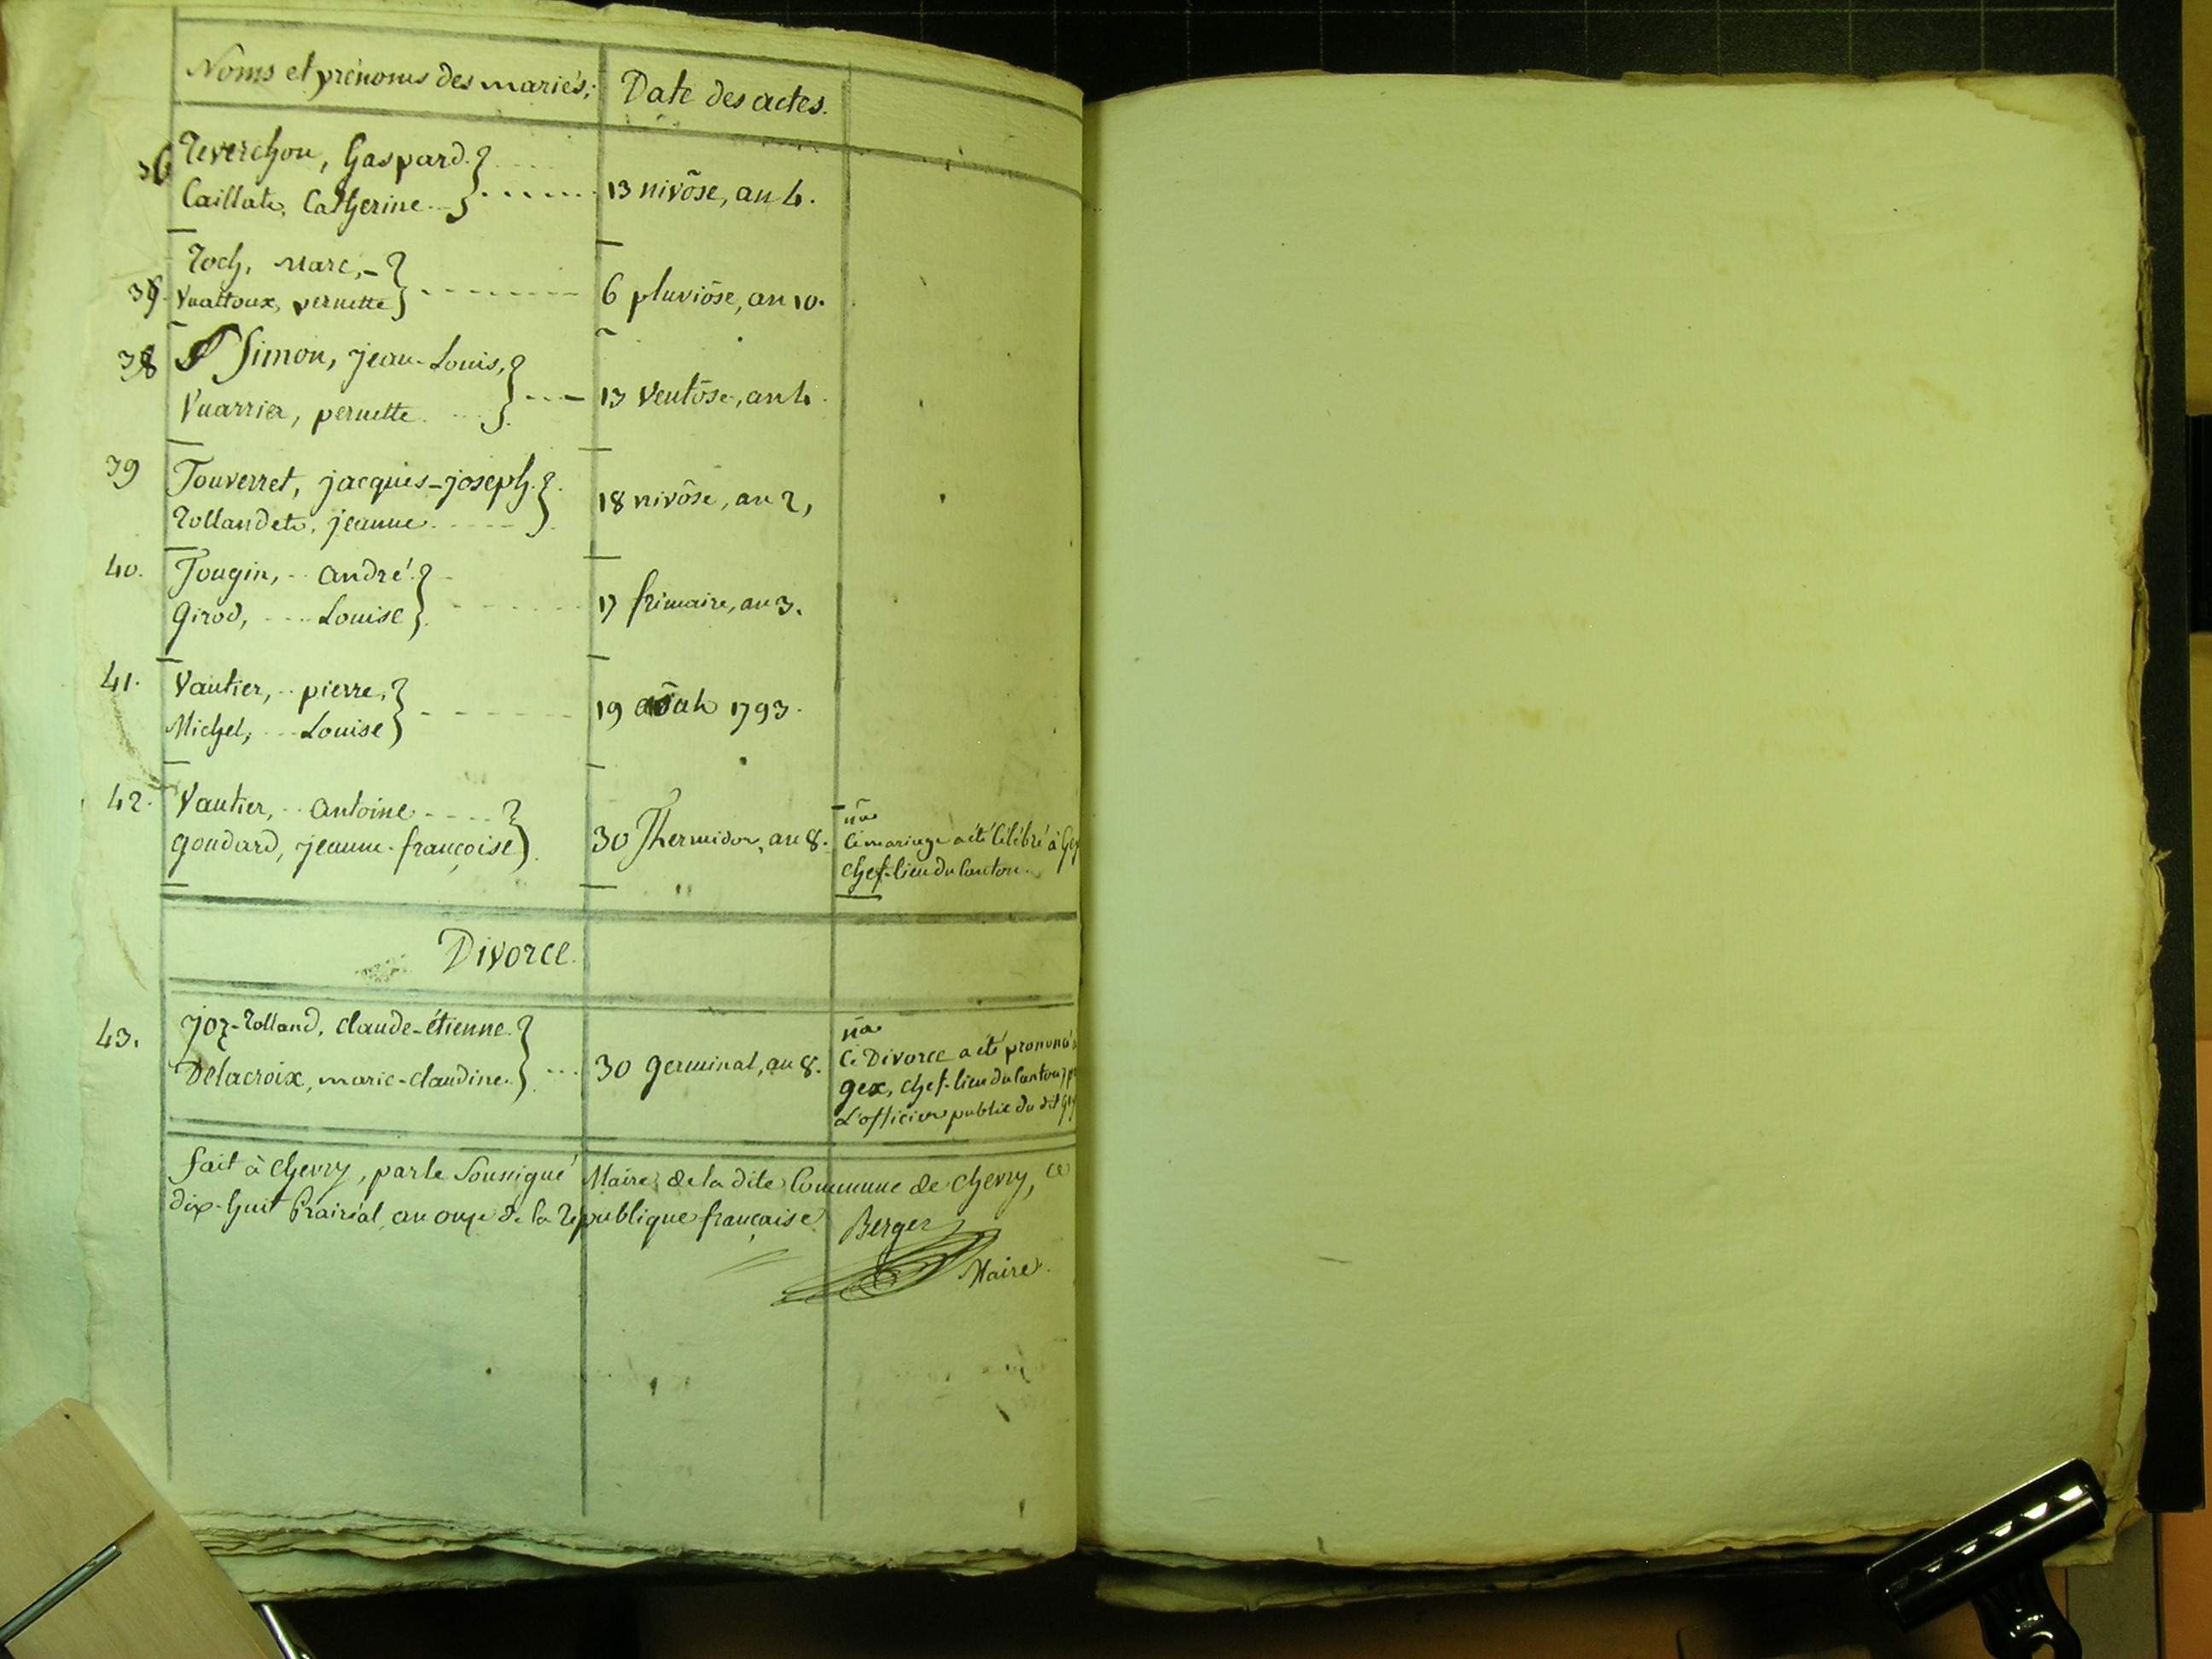 Noms et prénoms des mariés; Date des actes.
36 Reverchon, Gaspard.
Caillat, Catherine 13 nivôse, an 4.
37. Roch, Marc,
Vuattoux, pernette 6 pluviôse, an 10.
38 Simon, jean-Louis,
Vuarrier, pernette 13 Ventôse, an 4.
39 Touverret, jacques-joseph.
Rollandet, jeanne 18 nivôse, an 2,
40. Tougin, andré.
Girod, Louise 17 frimaire, an 3.
41. Vautier, pierre,
Michel, Louise 19 août 1793.
42. Vautier, antoine
goudard, jeanne-françoise 30 Thermidor, an 8.
na
Ce mariage a été Célébré à Gex
Chef-lieu du Canton.
Divorce.
43. joz-Rolland, claude-étienne.
Delacroix, marie-claudine. 30 germinal, an 8.
na
Ce Divorce a été prononcé
gex, chef-lieu du Canton,
L'officier public du dit gex
fait à Chevry, par le Soussigné Maire de la dite Commune de Chevry, ce
dix-huit Prairéal, an onze de la République française
Berger
Maire.